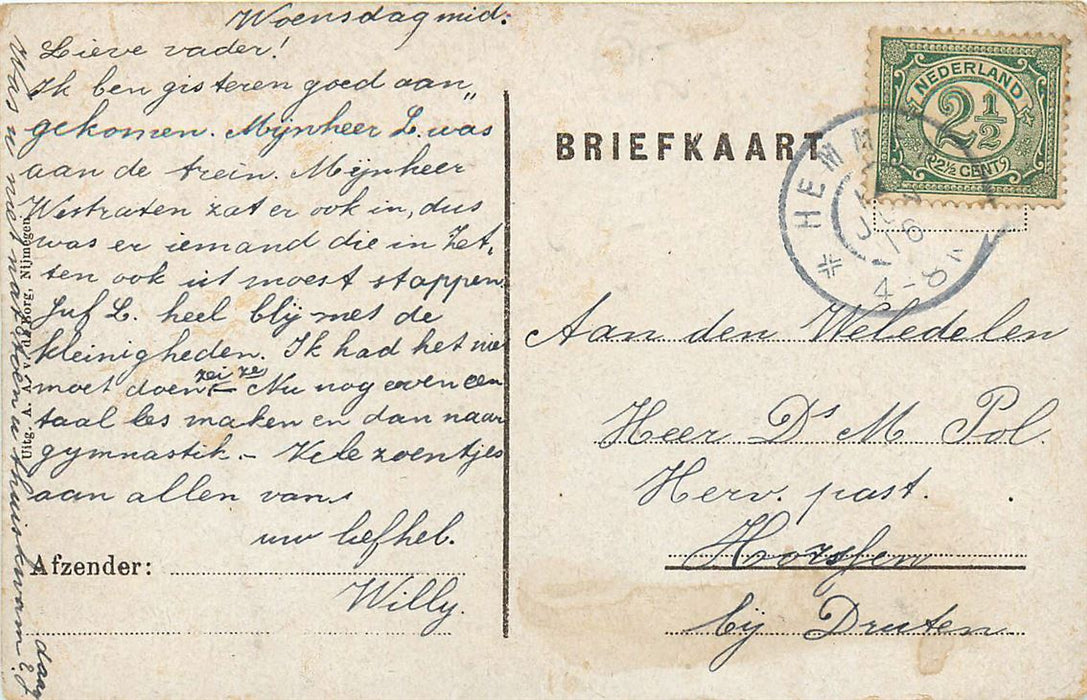 Woensdagmid.
Lieve vader!
Ik ben gisteren goed aan„
gekomen. Mijnheer L. was
aan de trein. Mijnheer
Westraten zat er ook in, dus
was er iemand die in Zet„
ten ook uit moest stappen.
Juf L. heel blij met de
kleinigheden. Ik had het nie
moet doen zei ze Nu nog even een
taal les maken en dan naar
gymnastik. – Vele zoentjes
aan allen van
uw liefheb.
Willy.
Afzender:
Was u niet nat toen u thuiskwam?
daag
Nijmegen.
BRIEFKAART
NEDERLAND
2½
2½ CENT
HEMM
16
4-8
Aan den Weledelen
Heer Ds M Pol.
Herv. past.
Horssen
bij Druten